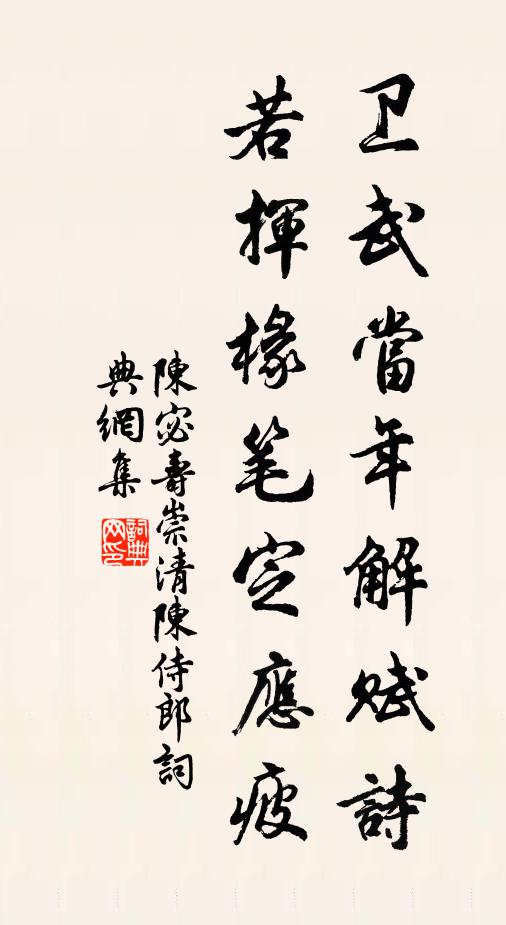 卫武當年解赋詩
若揮椽笔定應疲
陳宓壽崇清陳侍郎詞
典網集
詞典
网印